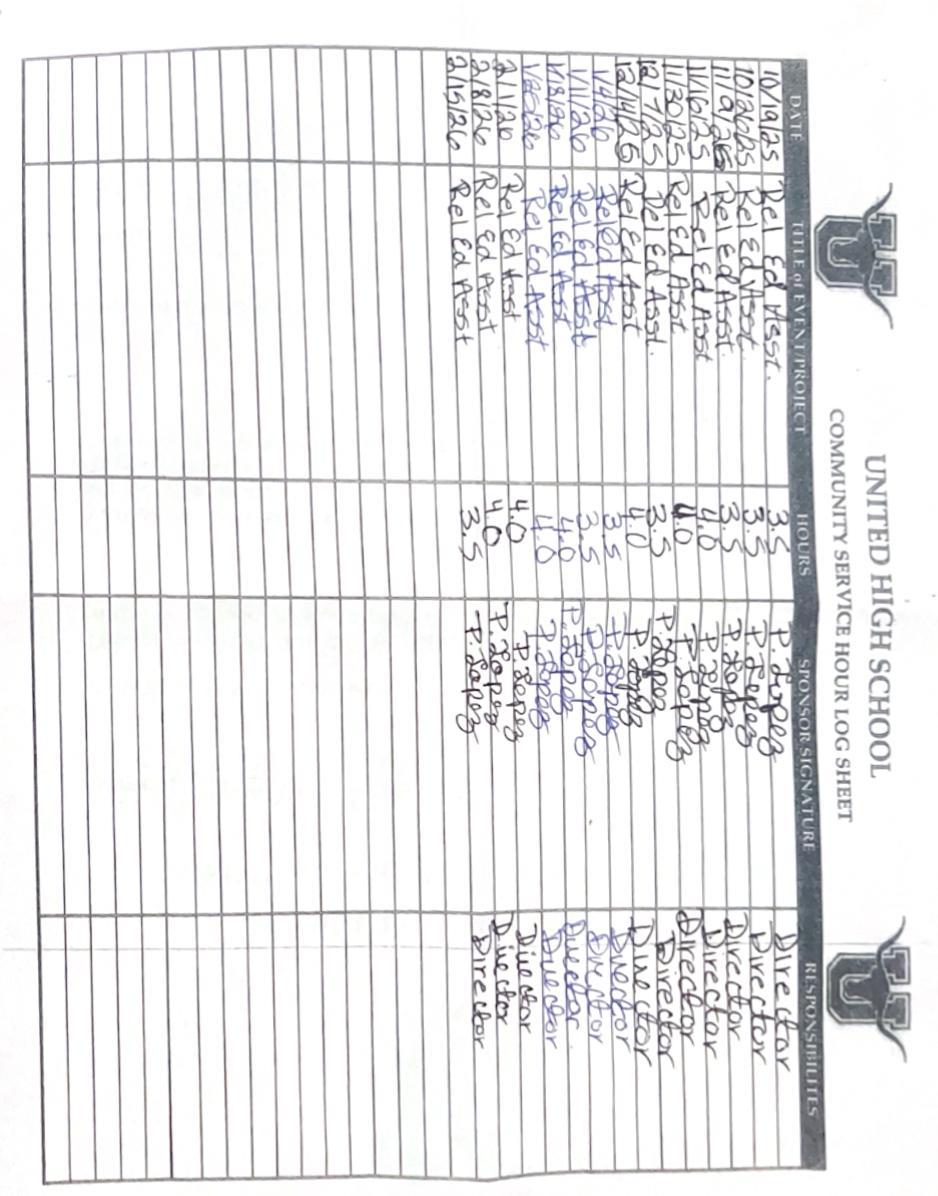 UNITED HIGH SCHOOL
COMMUNITY SERVICE HOUR LOG SHEET
DATE TITLE of EVENT/PROJECT HOURS SPONSOR SIGNATURE RESPONSIBILITES
10/19/25 Rel Ed Asst. 3.5 P. Lopez Director
10/26/25 Rel Ed Asst. 3.5 P. Lopez Director
11/9/25 Rel Ed Asst. 3.5 P. Lopez Director
11/16/25 Rel Ed Asst 4.0 P. Lopez Director
11/30/25 Rel Ed Asst 4.0 P. Lopez Director
12/7/25 Rel Ed Asst. 3.5 P. Lopez Director
12/14/25 Rel Ed Asst 4.0 P. Lopez Director
1/4/26 Rel Ed Asst 3.5 P. Lopez Director
1/11/26 Rel Ed Asst 3.5 P. Lopez Director
1/18/26 Rel Ed Asst 4.0 P. Lopez Director.
1/25/26 Rel Ed Asst 4.0 P. Lopez Director
2/1/26 Rel Ed Asst 4.0 P. Lopez Director
2/8/26 Rel Ed Asst 4.0 P. Lopez Director
2/15/26 Rel Ed Asst 3.5 P. Lopez Director